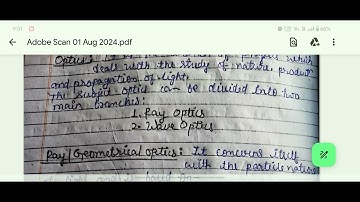 9:01
66%
Adobe Scan 01 Aug 2024.pdf
Optics: It is the of physics which
deals with the study of nature, product
and propagation of light.
The subject optics can be divided into two
main branches:
1. Ray Optics
2. Wave Optics
Ray / Geometrical Optics: It concerns itself
with the particle nature